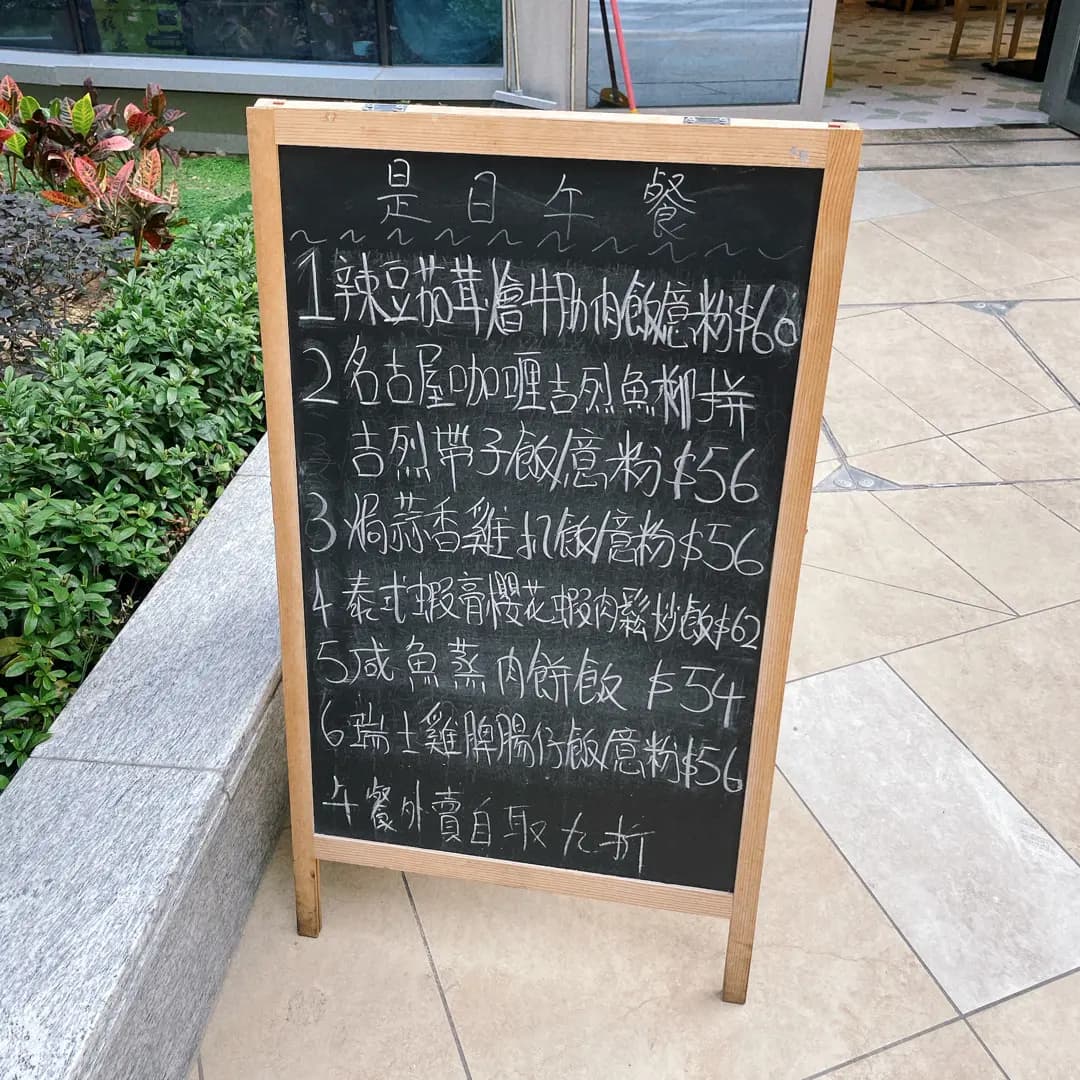 是日午餐
1 辣豆茄茸燴牛肋肉飯/意粉 $60
2 名古屋咖喱吉烈魚柳拼
吉烈帶子飯/意粉 $56
3 焗蒜香雞扒飯/意粉 $56
4 泰式蝦膏櫻花蝦肉鬆炒飯 $62
5 咸魚蒸肉餅飯 $54
6 瑞士雞脾腸仔飯/意粉 $56
午餐外賣自取九折